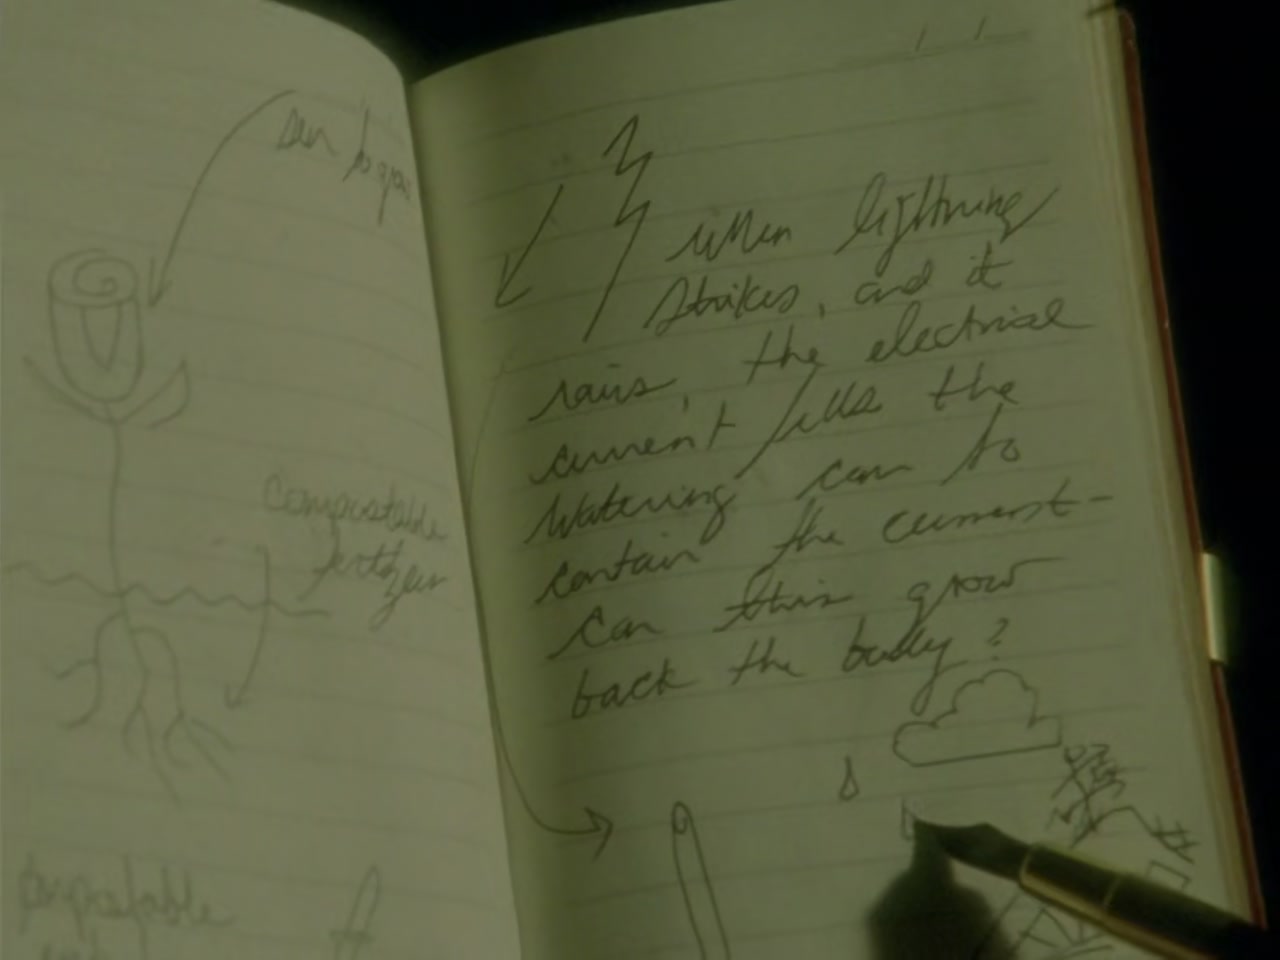 sun to grow
compostable
fertilizer
When lightning
strikes, and it
rains, the electrical
current fills the
watering can to
contain the current-
can this grow
back the body?